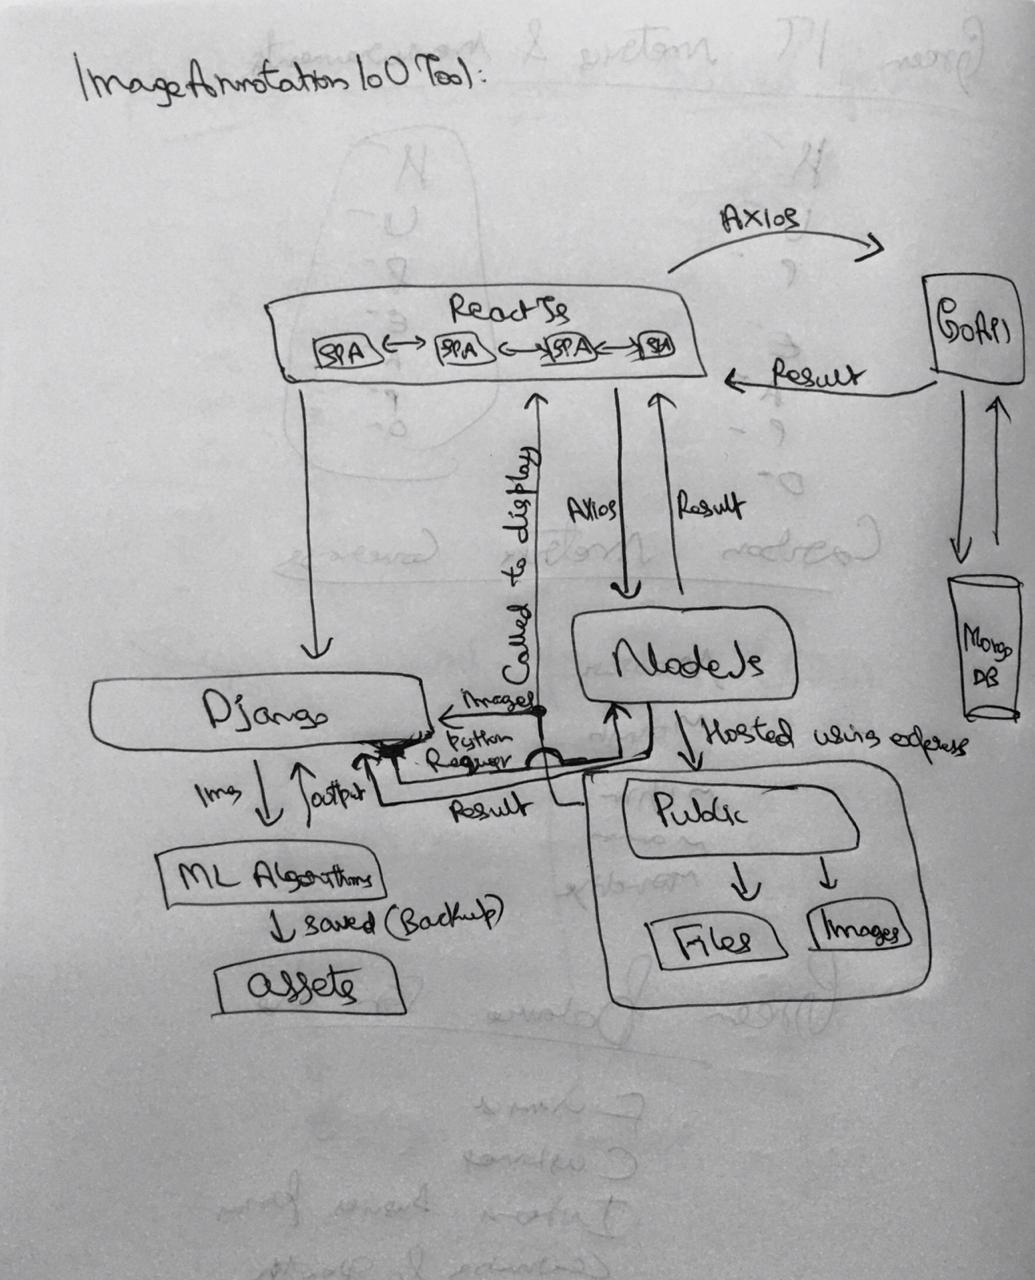 Image Annotation IoO Tool:
Axios
ReactJs
GoAPI
SPA SPA SPA SPA
Result
Called to display
Axios
Result
NodeJs
Mongo
DB
Django
Images
Python
Request
Hosted using express
Img
output
Result
Public
ML Algorithms
saved (Backup)
Files
Images
assets